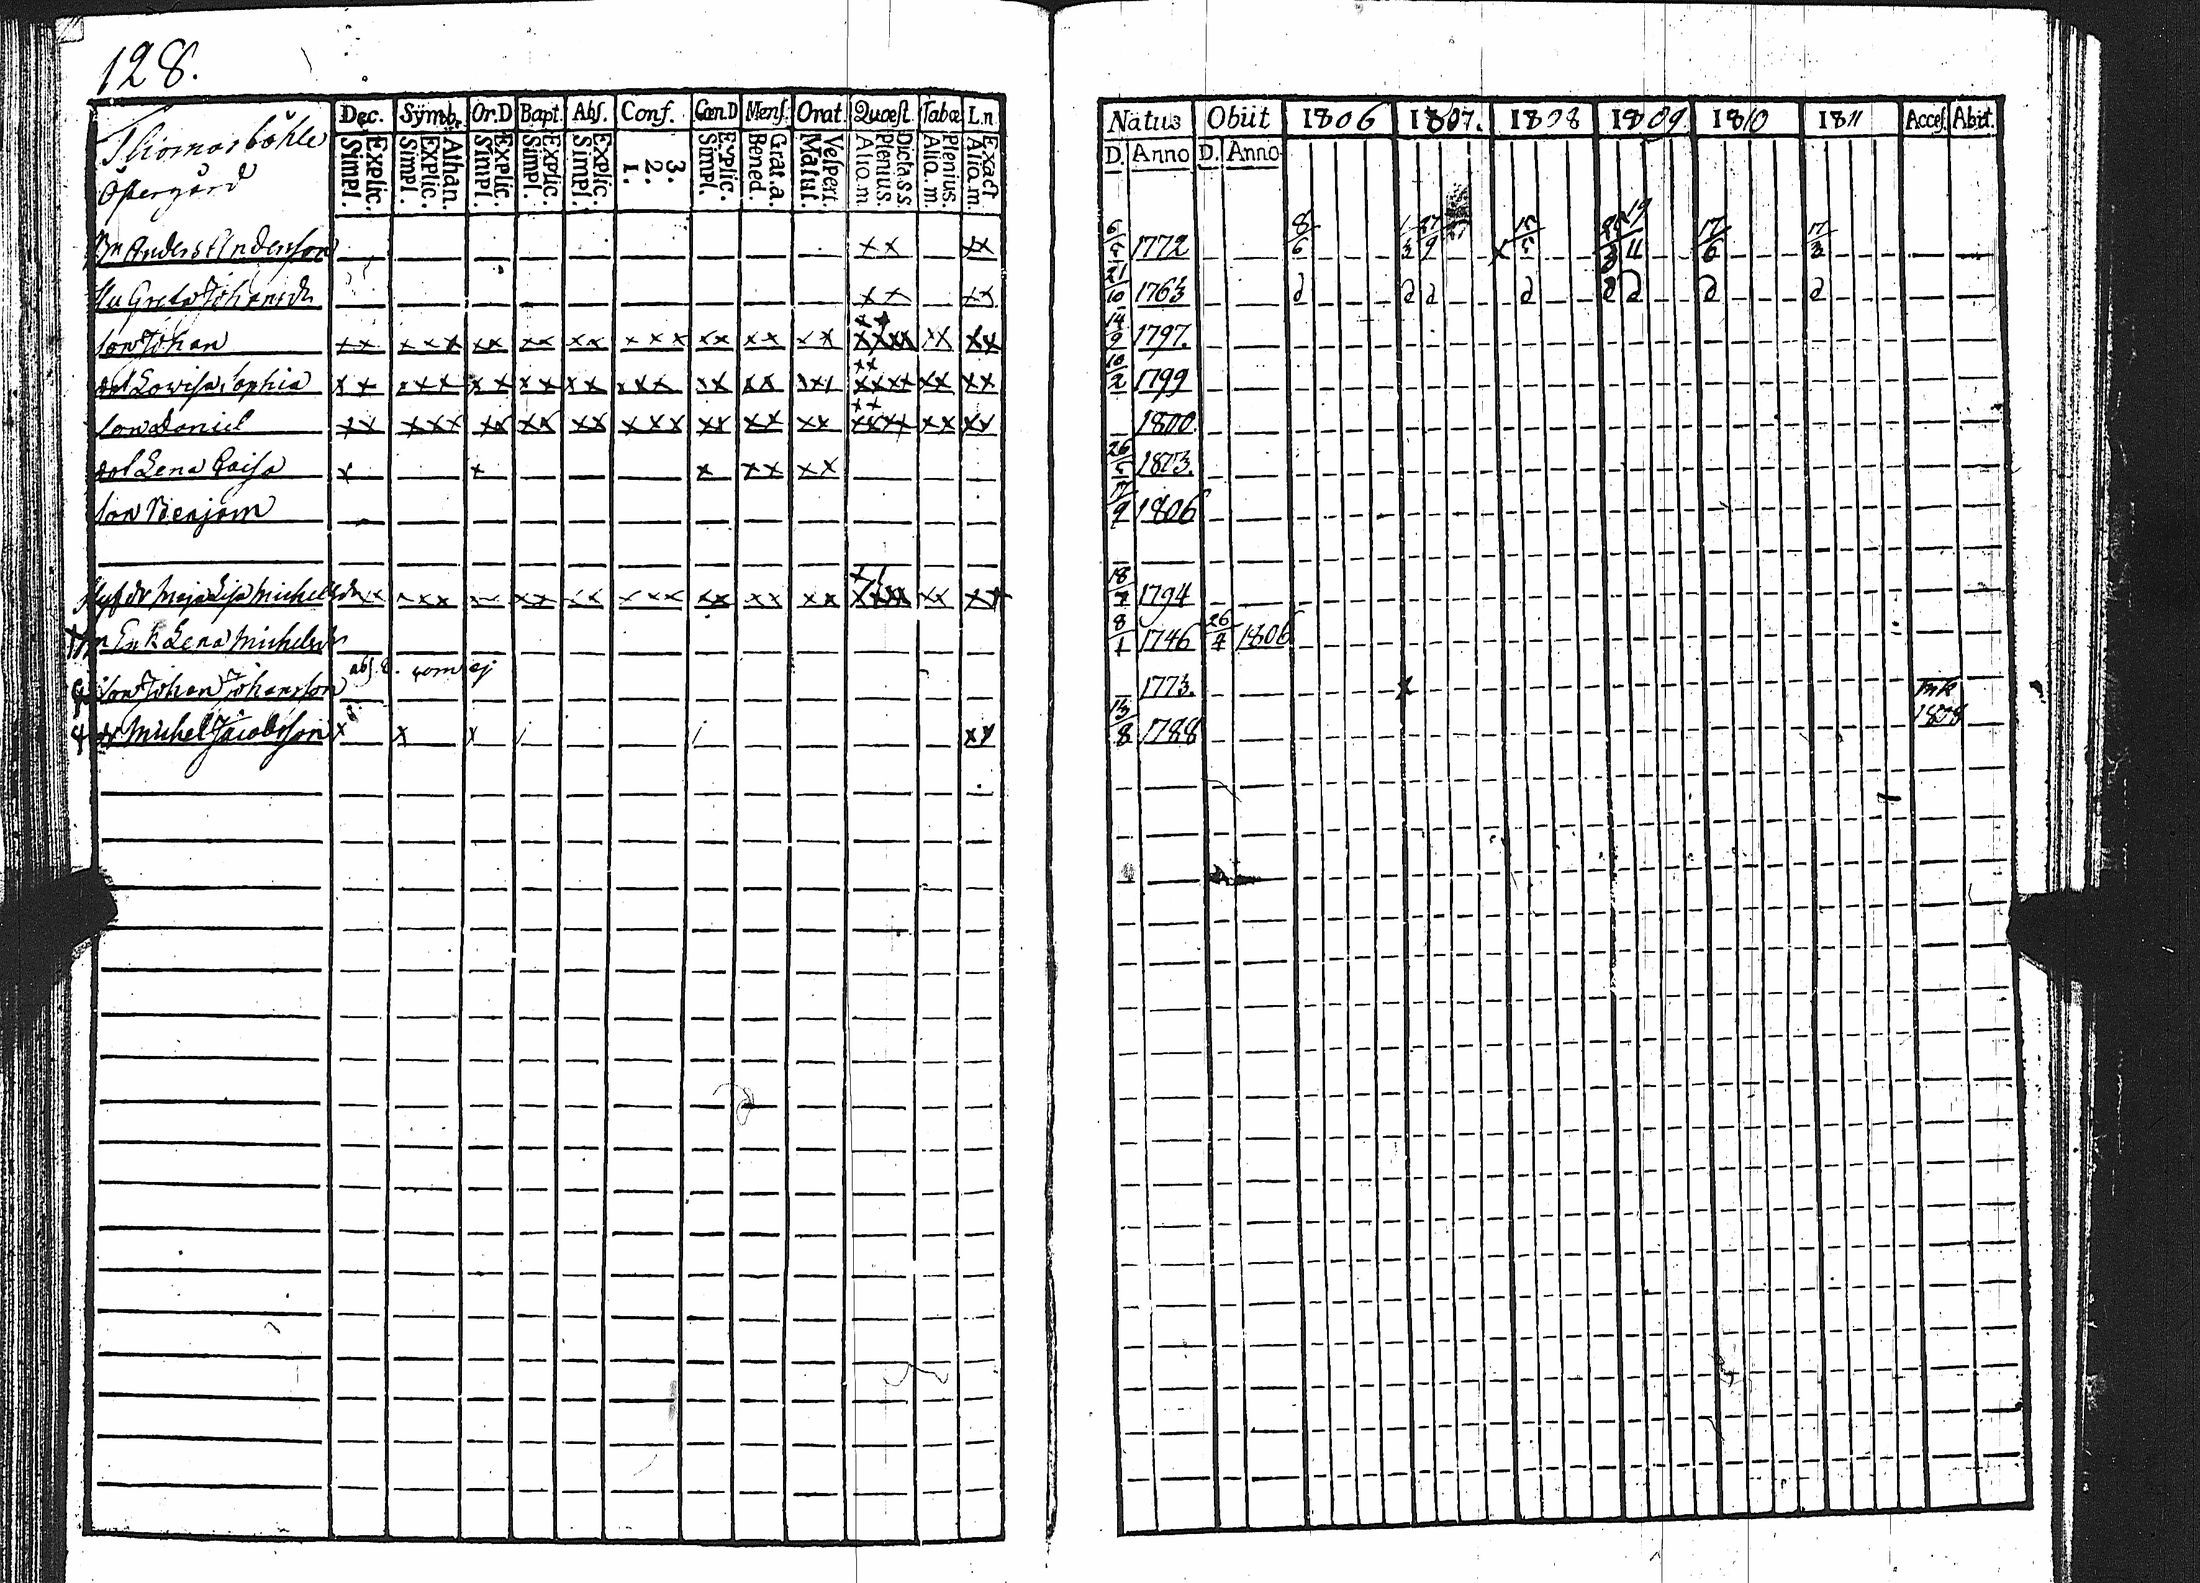 128.
Thomasböhle
Östergård
Dec. Symb. Or.D Bapt. Abs. Conf. Cœn.D Mens. Orat. Quœst. Tabœ L.n
Explic. Simpl. Athan. Explic. Simpl. Explic. Simpl. Explic. Simpl. Explic. Simpl. 3. 2. 1. Explic. Simpl. Grat.a. Bened. Vespert. Matut. Dicta s.s. Plenius. Aliq.m. Plenius. Aliq.m. Exact Aliq.m.
Natus Obiit 1806 1807. 1808 1809 1810 1811 Acces. Abiit.
D. Anno D. Anno
Anders Andersson xx xx 1772 8/6 17/6 17/3
Greta Johansdr xx xx 21/10 1763
son Johan xx xxx xx xx xx xxx xx xx xx xx xxxx xx xx 14/9 1797.
dot Lovisa Sophia xx xxx xx xx xx xxx xx xx xxx xx xxxx xx xx 10/2 1799
son Daniel xx xxx xx xx xx xxx xx xx xx xx xxxx xx xx 1800
dot Lena Caisa x x x xx xx 26/5 1803.
son Benjam 17/9 1806
Maja Lisa Michelsdr xx xxx xx xx xx xxx xx xx xx xxxx xx xx 18/7 1794
Enk Lena Michelsdr 8/1 1746 26/4 1806
son Johan Johansson 1773. x
dr Michel Jacobsson x x x xx 13/8 1788 1808